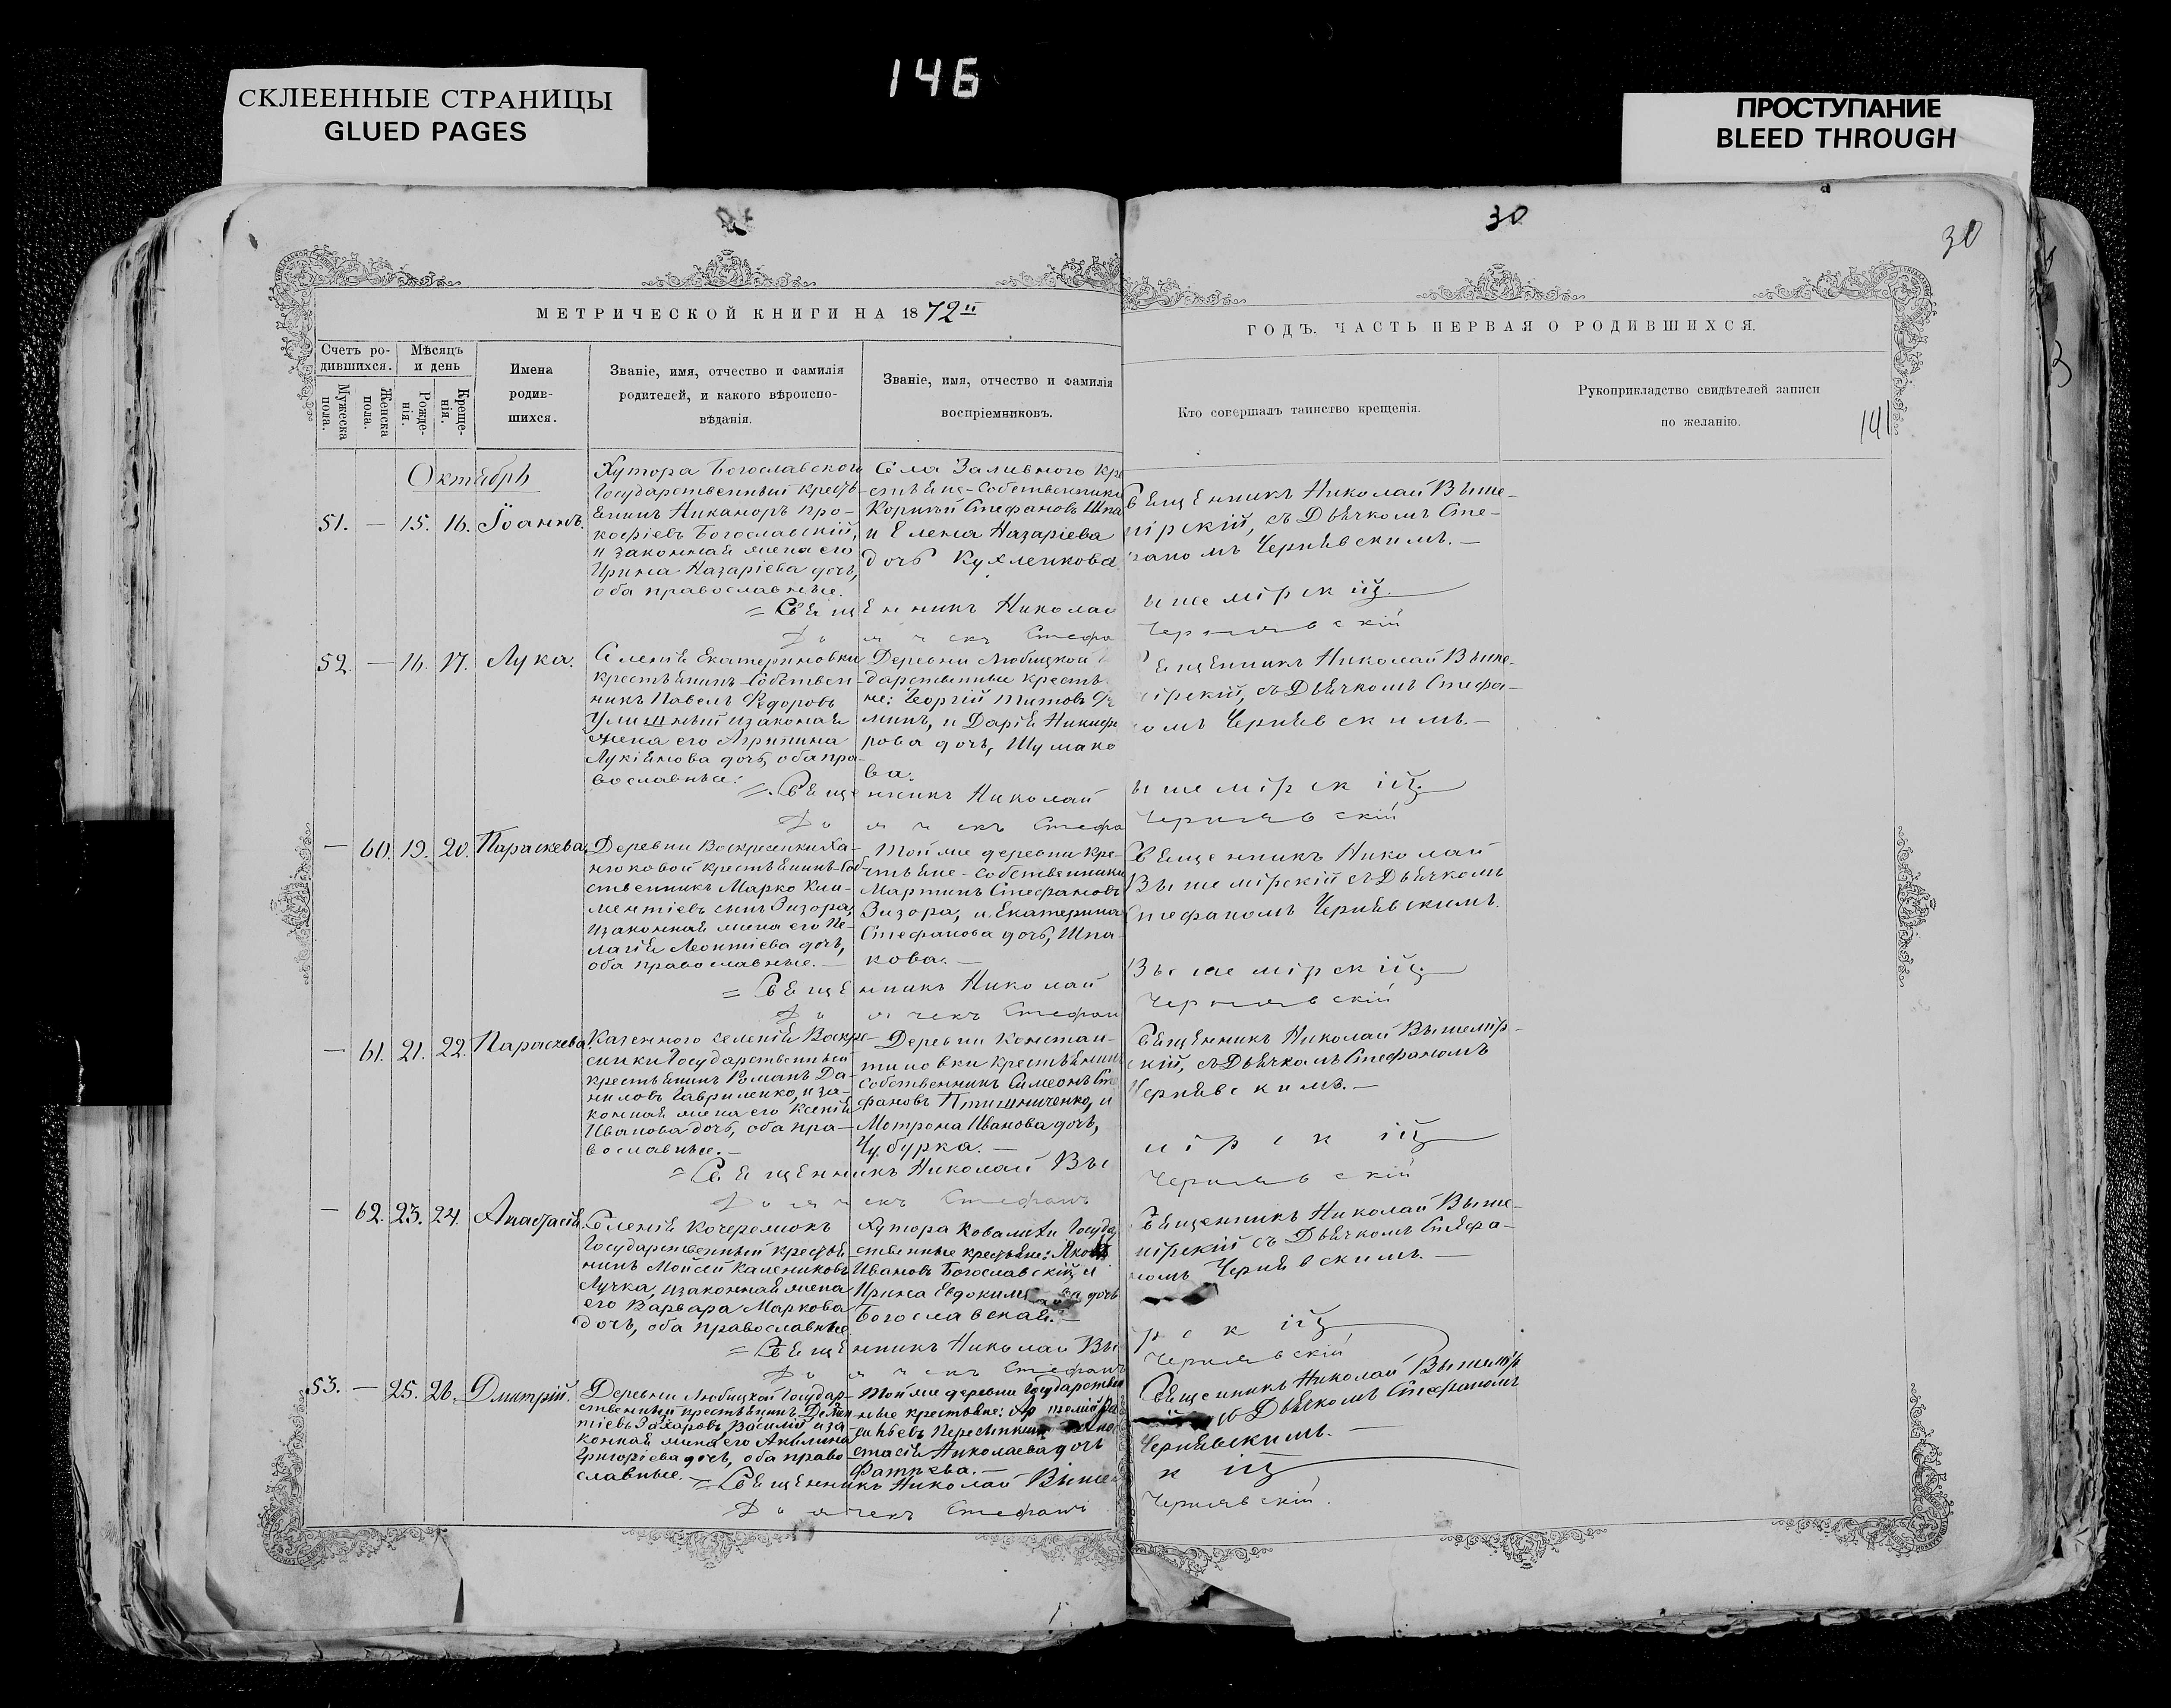 146
СКЛЕЕННЫЕ СТРАНИЦЫ
GLUED PAGES
ПРОСТУПАНИЕ
BLEED THROUGH
30
30
141
МЕТРИЧЕСКОЙ КНИГИ НА 1872й
ГОДЪ. ЧАСТЬ ПЕРВАЯ О РОДИВШИХСЯ.
Счетъ ро-
дившихся.
Мужеска
пола.
Женска
пола.
Мѣсяцъ
и день
Рожде-
нія.
Креще-
нія.
Имена
родив-
шихся.
Званіе, имя, отчество и фамилія
родителей, и какого вѣроиспо-
вѣданія.
Званіе, имя, отчество и фамилія
воспріемниковъ.
Кто совершалъ таинство крещенія.
Рукоприкладство свидѣтелей записи
по желанію.
Октябрь
51. — 15. 16. Іоаннъ.
Хутора Богославского
Государственный кресть-
янинъ Никаноръ Про-
кофіевъ Богославскій,
и законная жена его
Ирина Назаріева дочь,
оба православные.
Села Заливного кре
стьяне-собственники
Корнѣй Стефановъ Шпа
и Елена Назаріева
дочь Кухленкова
Священникъ Николай Выше-
мірскій, съ Дьячкомъ Сте-
фаномъ Чернявскимъ.—
= Священникъ Николай Вышемірскій.
Дьячекъ Стефа Чернявскій
52. — 16. 17. Лука.
Селенія Екатериновки
крестьянинъ-собствен-
никъ Павелъ Федоровъ
Улишный и законая
жена его Агрипина
Лукіянова дочь, оба пра-
вославные.
Деревни Любицкой Го
дарственные крестья
не: Георгій Титовъ
минъ, и Дарія Никифо
рова дочь, Шумако
ва.
Священникъ Николай Выше-
мірскій, съ Дьячкомъ Стефа-
номъ Чернявскимъ.—
= Священникъ Николай Вышемірскій.
Дьячекъ Стефа Чернявскій
— 60. 19. 20. Параскева.
Деревни Воскресенки Ха-
нюковой крестьянинъ-соб-
ственникъ Марко Кли-
ментіевъ сынъ Зизора,
и законная жена его Пе-
лагія Леонтіева дочь,
оба православные.—
Той же деревни кре-
стьяне-собственники
Мартинъ Стефановъ
Зизора, и Екатерина
Стефанова дочь, Шпа-
кова.—
Священникъ Николай
Вышемірскій съ Дьячкомъ
Стефаномъ Чернявскимъ.
= Священникъ Николай Вышемірскій.
Дьячекъ Стефан Чернявскій
— 61. 21. 22. Параскева.
Казенного селенія Воскре-
сенки Государственный
крестьянинъ Романъ Да-
ниловъ Гавриленко, и за-
конная жена его Ксенія
Иванова дочь, оба пра-
вославные.—
Деревни Констан-
тиновки крестьянинъ
собственникъ Симеонъ Сте
фановъ Птишниченко, и
Мотрона Иванова дочь,
Чубурка.—
Священникъ Николай Вышемір-
скій, съ Дьячкомъ Стефаномъ
Чернявскимъ.—
= Священникъ Николай Вышемірскій
Дьячекъ Стефанъ Чернявскій
— 62. 23. 24. Анастасія.
Селенія Кочережокъ
Государственный крестья-
нинъ Моисей Калениковъ
Лучка, и законная жена
его Варвара Маркова
дочь, оба православные
Хутора Ковалихи Госуда
ственные крестьяне: Яковъ
Ивановъ Богославскій и
Ирина Евдокимова дочь
Богославская.—
Священникъ Николай Выше-
мірскій съ Дьячкомъ Стефа-
номъ Чернявскимъ.—
= Священникъ Николай Вышемірскій
Дьячекъ Стефанъ Чернявскій
53. — 25. 26. Дмитрій.
Деревни Любицкой Государ-
ственный крестьянинъ
Захаровъ, Василій и за-
конная жена его Акилина
Григоріева дочь, оба право-
славные.—
Той же деревни Государствен
ные крестьяне:
Ана
стасія Николаева дочь
Фатѣева.—
Священникъ Николай Вышемір
съ Дьячкомъ Стефаномъ
Чернявскимъ.—
= Священникъ Николай Вышемірскій
Дьячекъ Стефанъ Чернявскій.